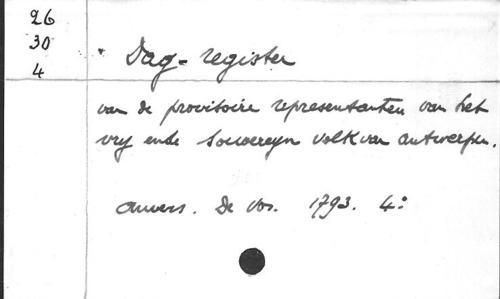 26
30
4
* Dag-register
van de provisoire representanten van het
vry ende souvereyn volk van antwerpen.
Anvers. De Vos. 1793. 4°